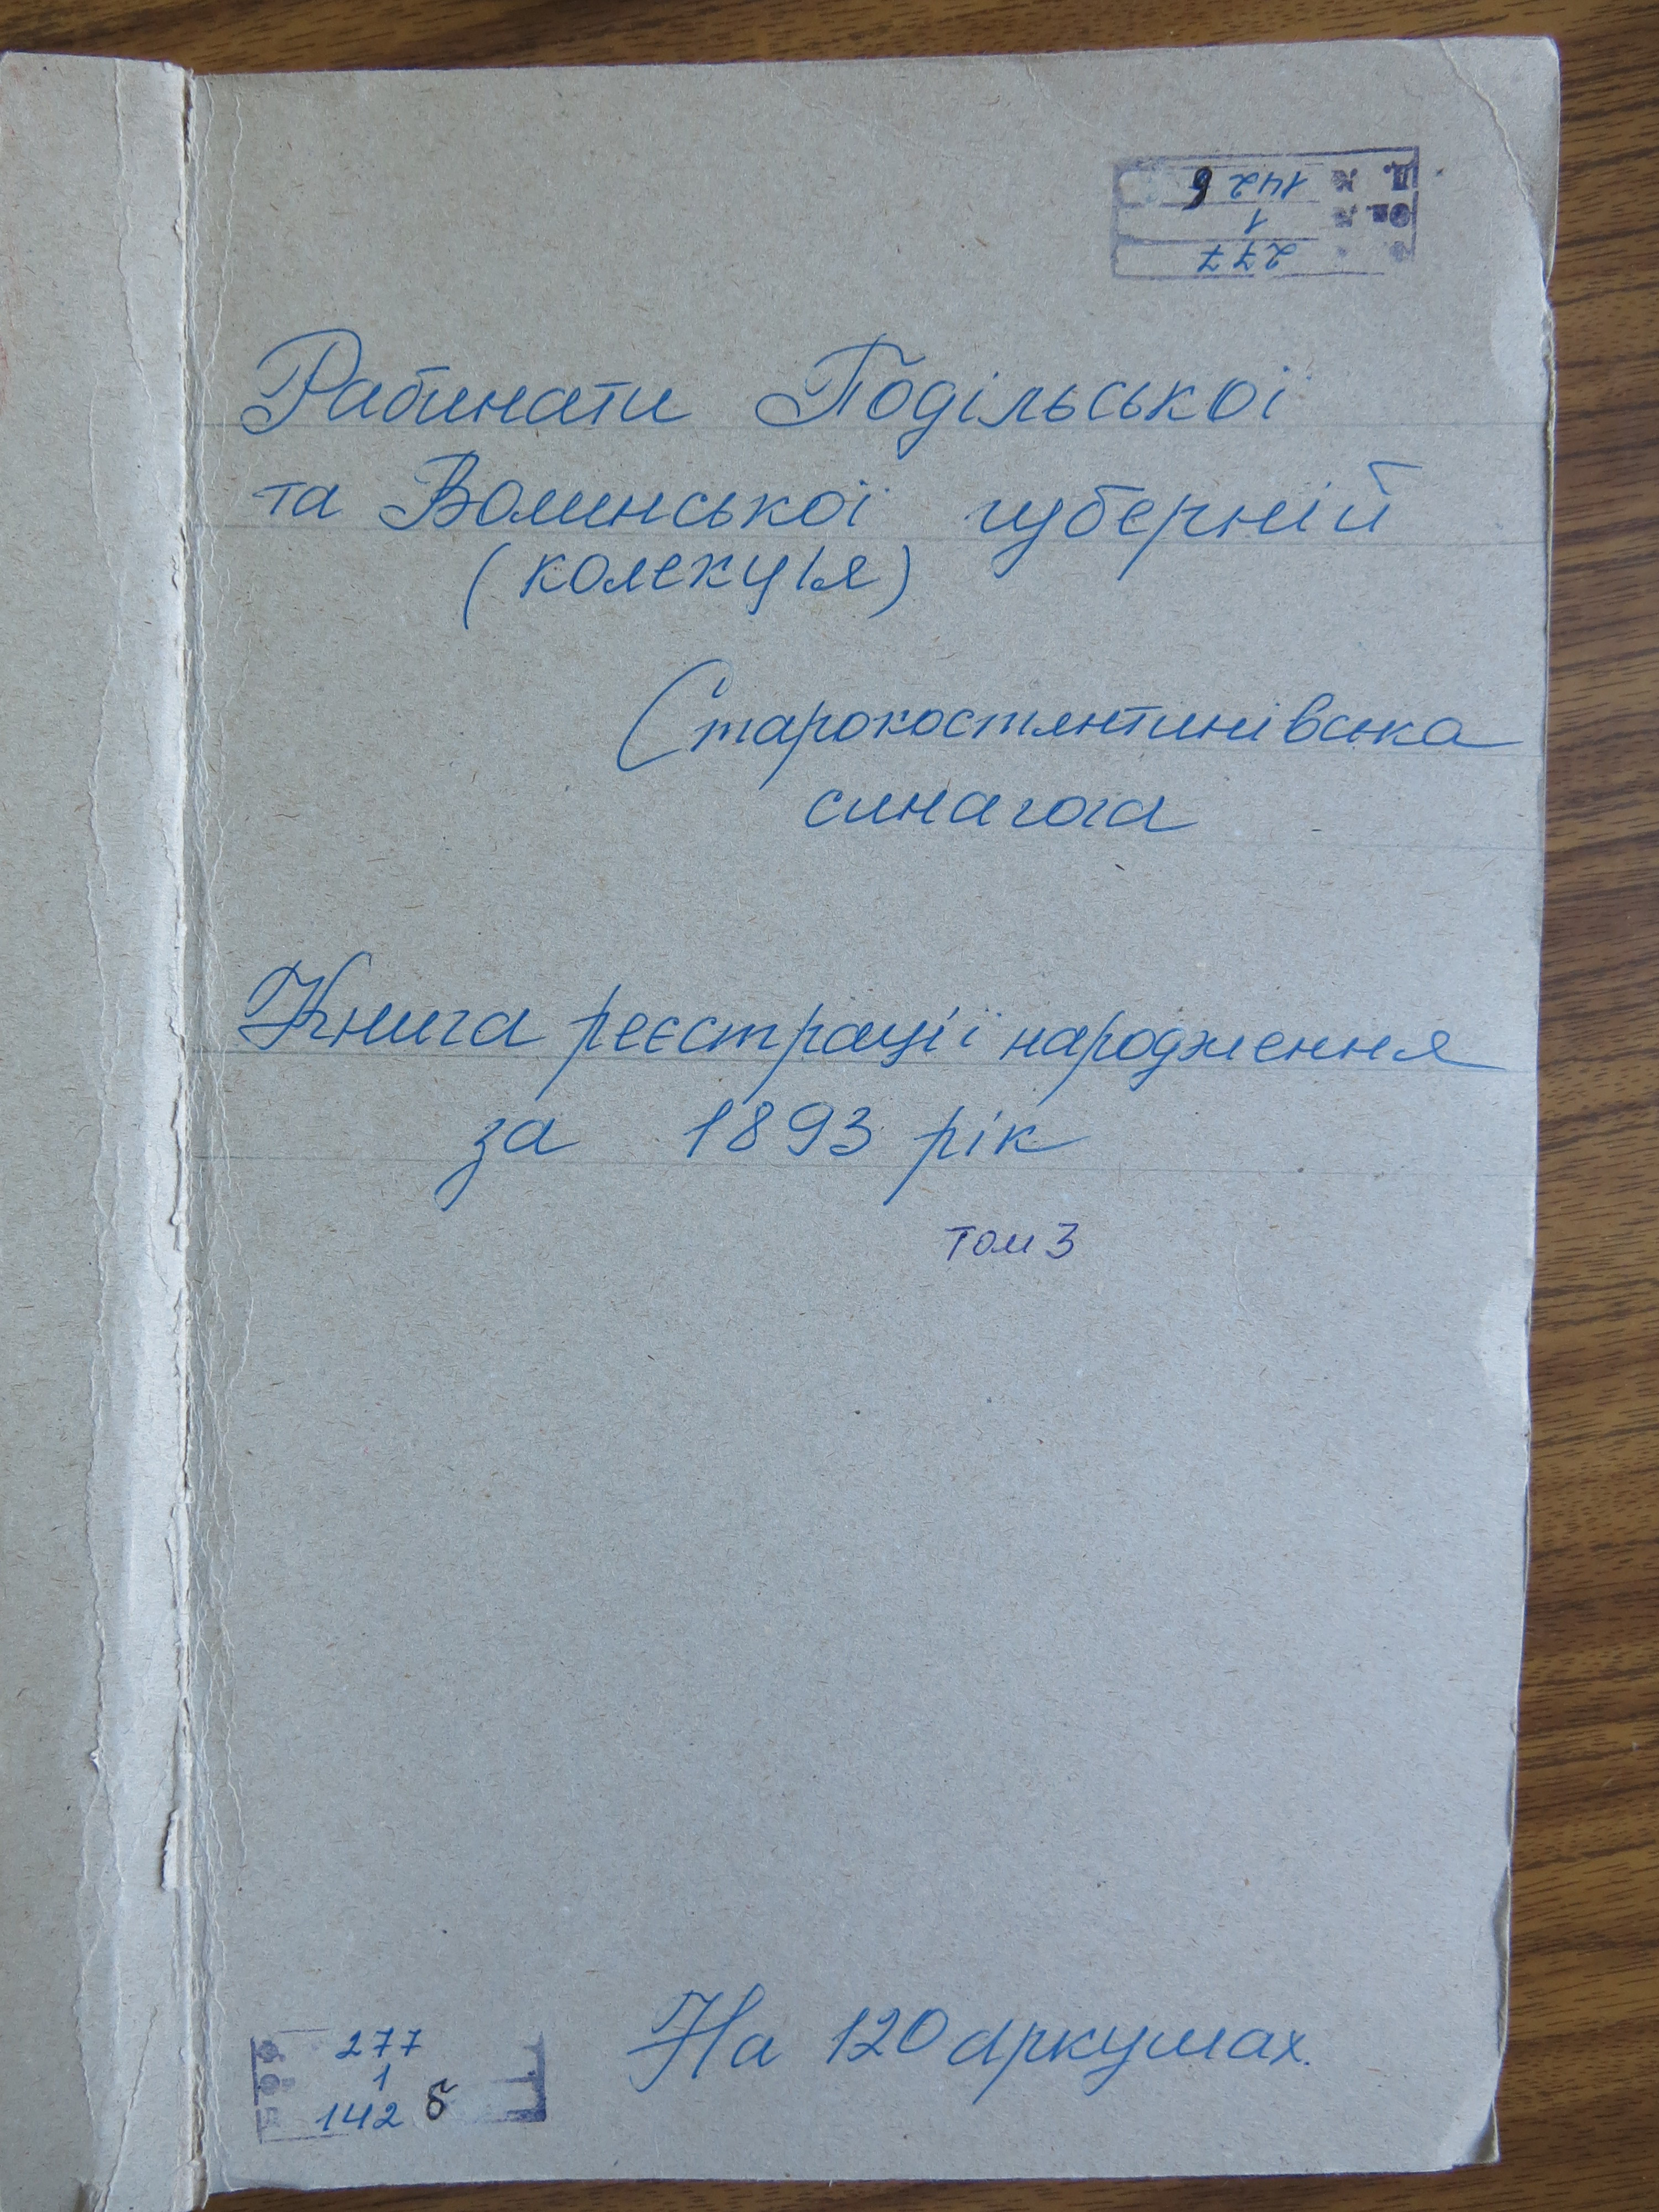 Д. № 142 б
Оп. № 1
277
Рабинати Подільської
та Волинської губерній
(колекція)
Старокостянтинівська
синагога
Книга реєстрації народження
за 1893 рік
том 3
277
1
142 б
На 120 аркушах.